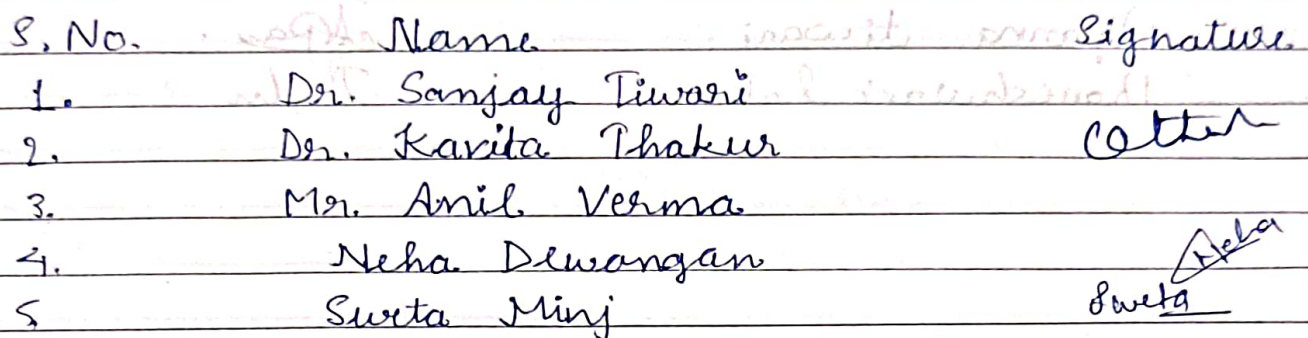 S. No. Name Signature
1. Dr. Sanjay Tiwari
2. Dr. Kavita Thakur
3. Mr. Anil Verma
4. Neha Dewangan Neha
5 Sweta Minj Sweta